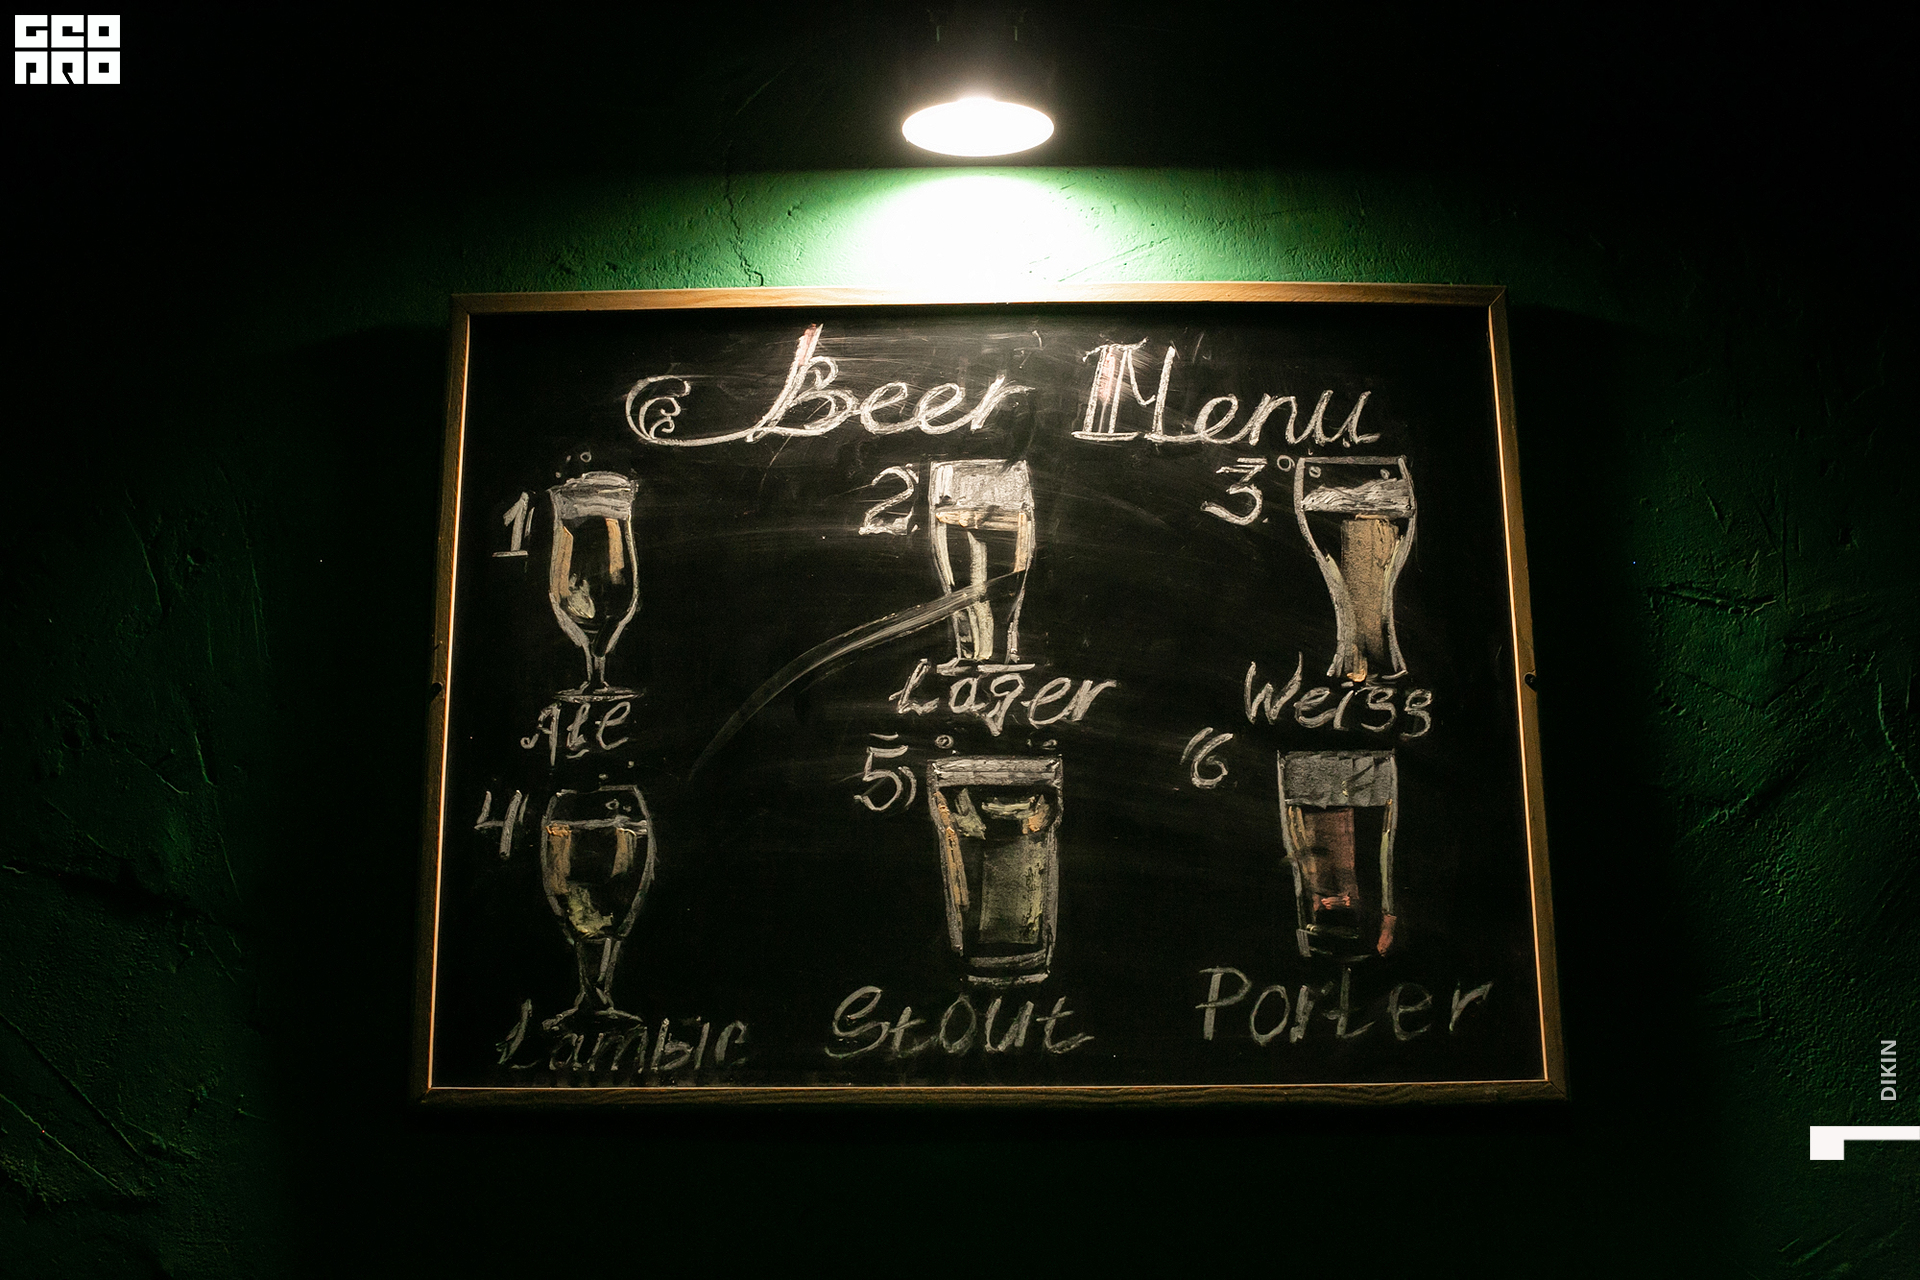 GEO
PRO
Beer Menu
1
2.
3.
Ale
Lager
Weiss
4
5
6
Lambic
Stout
Porter
DIKIN